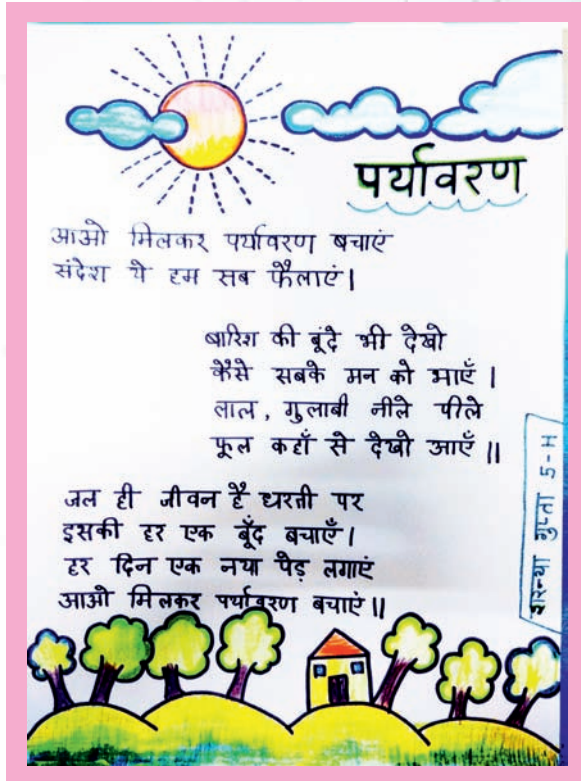 पर्यावरण
आओ मिलकर पर्यावरण बचाएं
संदेश ये हम सब फैलाएं।
बारिश की बूंदे भी देखो
कैसे सबके मन को भाएँ।
लाल, गुलाबी नीले पीले
फूल कहाँ से देखो आएँ॥
जल ही जीवन है धरती पर
इसकी हर एक बूँद बचाएँ।
हर दिन एक नया पेड़ लगाएं
आओ मिलकर पर्यावरण बचाएं॥
शरन्या गुप्ता 5-H